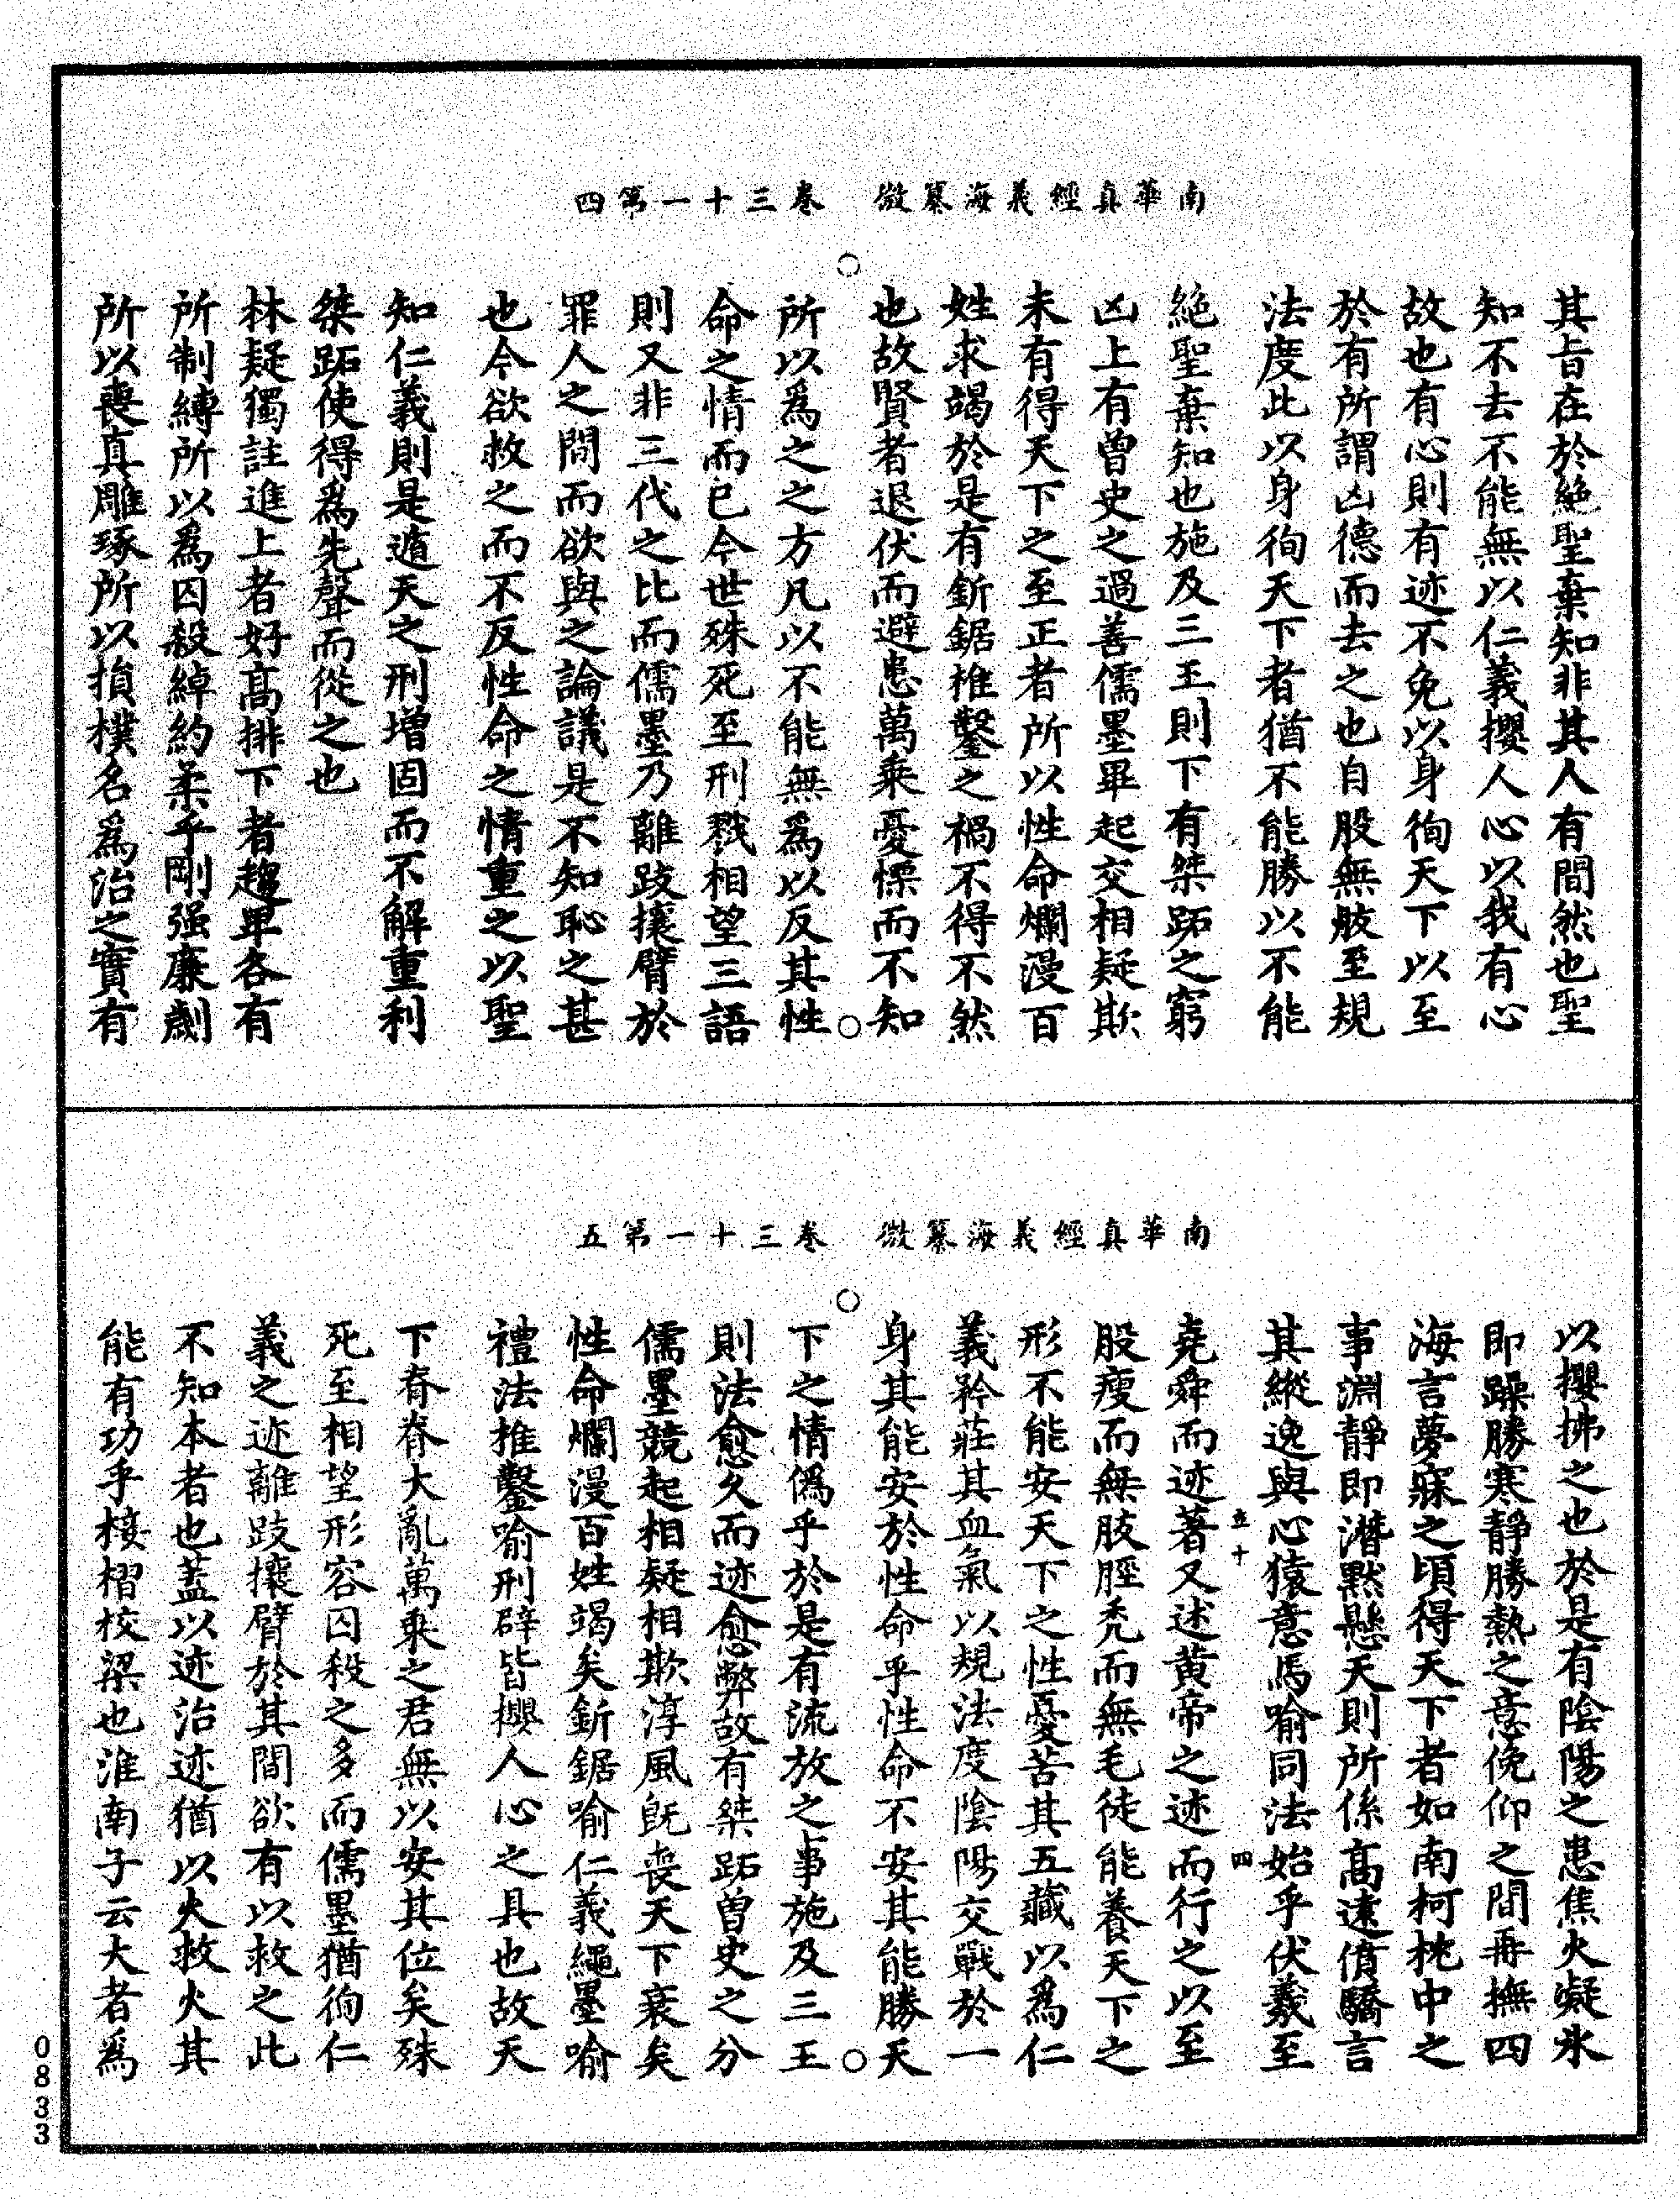 南華真經義海纂微　卷三十一第四
其旨在於絕聖棄知非其人有間然也聖
知不去不能無以仁義攖人心以我有心
故也有心則有迹不免以身徇天下以至
於有所謂凶德而去之也自股無胈至規
法度此以身徇天下者猶不能勝以不能
絕聖棄知也施及三王則下有桀跖之窮
凶上有曾史之過善儒墨畢起交相疑欺
未有得天下之至正者所以性命爛漫百
姓求竭於是有釿鋸椎鑿之禍不得不然
也故賢者退伏而避患萬乘憂慄而不知
所以為之之方凡以不能無為以反其性
命之情而已今世殊死至刑戮相望三語
則又非三代之比而儒墨乃離跂攘臂於
罪人之間而欲與之論議是不知恥之甚
也今欲救之而不反性命之情重之以聖
知仁義則是遁天之刑增固而不解重利
桀跖使得為先聲而從之也
林疑獨註進上者好高排下者趨卑各有
所制縛所以為囚殺綽約柔乎剛强廉劌
所以喪真雕琢所以損樸名為治之實有
南華真經義海纂微　卷三十一第五
以攖拂之也於是有陰陽之患焦火凝氷
即躁勝寒靜勝熱之意俛仰之間再撫四
海言夢寐之頃得天下者如南柯枕中之
事淵靜即潛默懸天則所係高遠僨驕言
其縱逸與心猿意馬喻同法始乎伏羲至
堯舜而迹著又述黄帝之迹而行之以至
股瘦而無胈脛禿而無毛徒能養天下之
形不能安天下之性憂苦其五藏以為仁
義矜莊其血氣以規法度陰陽交戰於一
身其能安於性命乎性命不安其能勝天
下之情僞乎於是有流放之事施及三王
則法愈久而迹愈弊故有桀跖曾史之分
儒墨競起相疑相欺淳風旣喪天下衰矣
性命爛漫百姓竭矣釿鋸喻仁義繩墨喻
禮法推鑿喻刑辟皆攖人心之具也故天
下脊脊大亂萬乘之君無以安其位矣殊
死至相望形容囚殺之多而儒墨猶徇仁
義之迹離跂攘臂於其間欲有以救之此
不知本者也蓋以迹治迹猶以火救火其
能有功乎椄槢校梁也淮南子云大者為
五十　四
0833